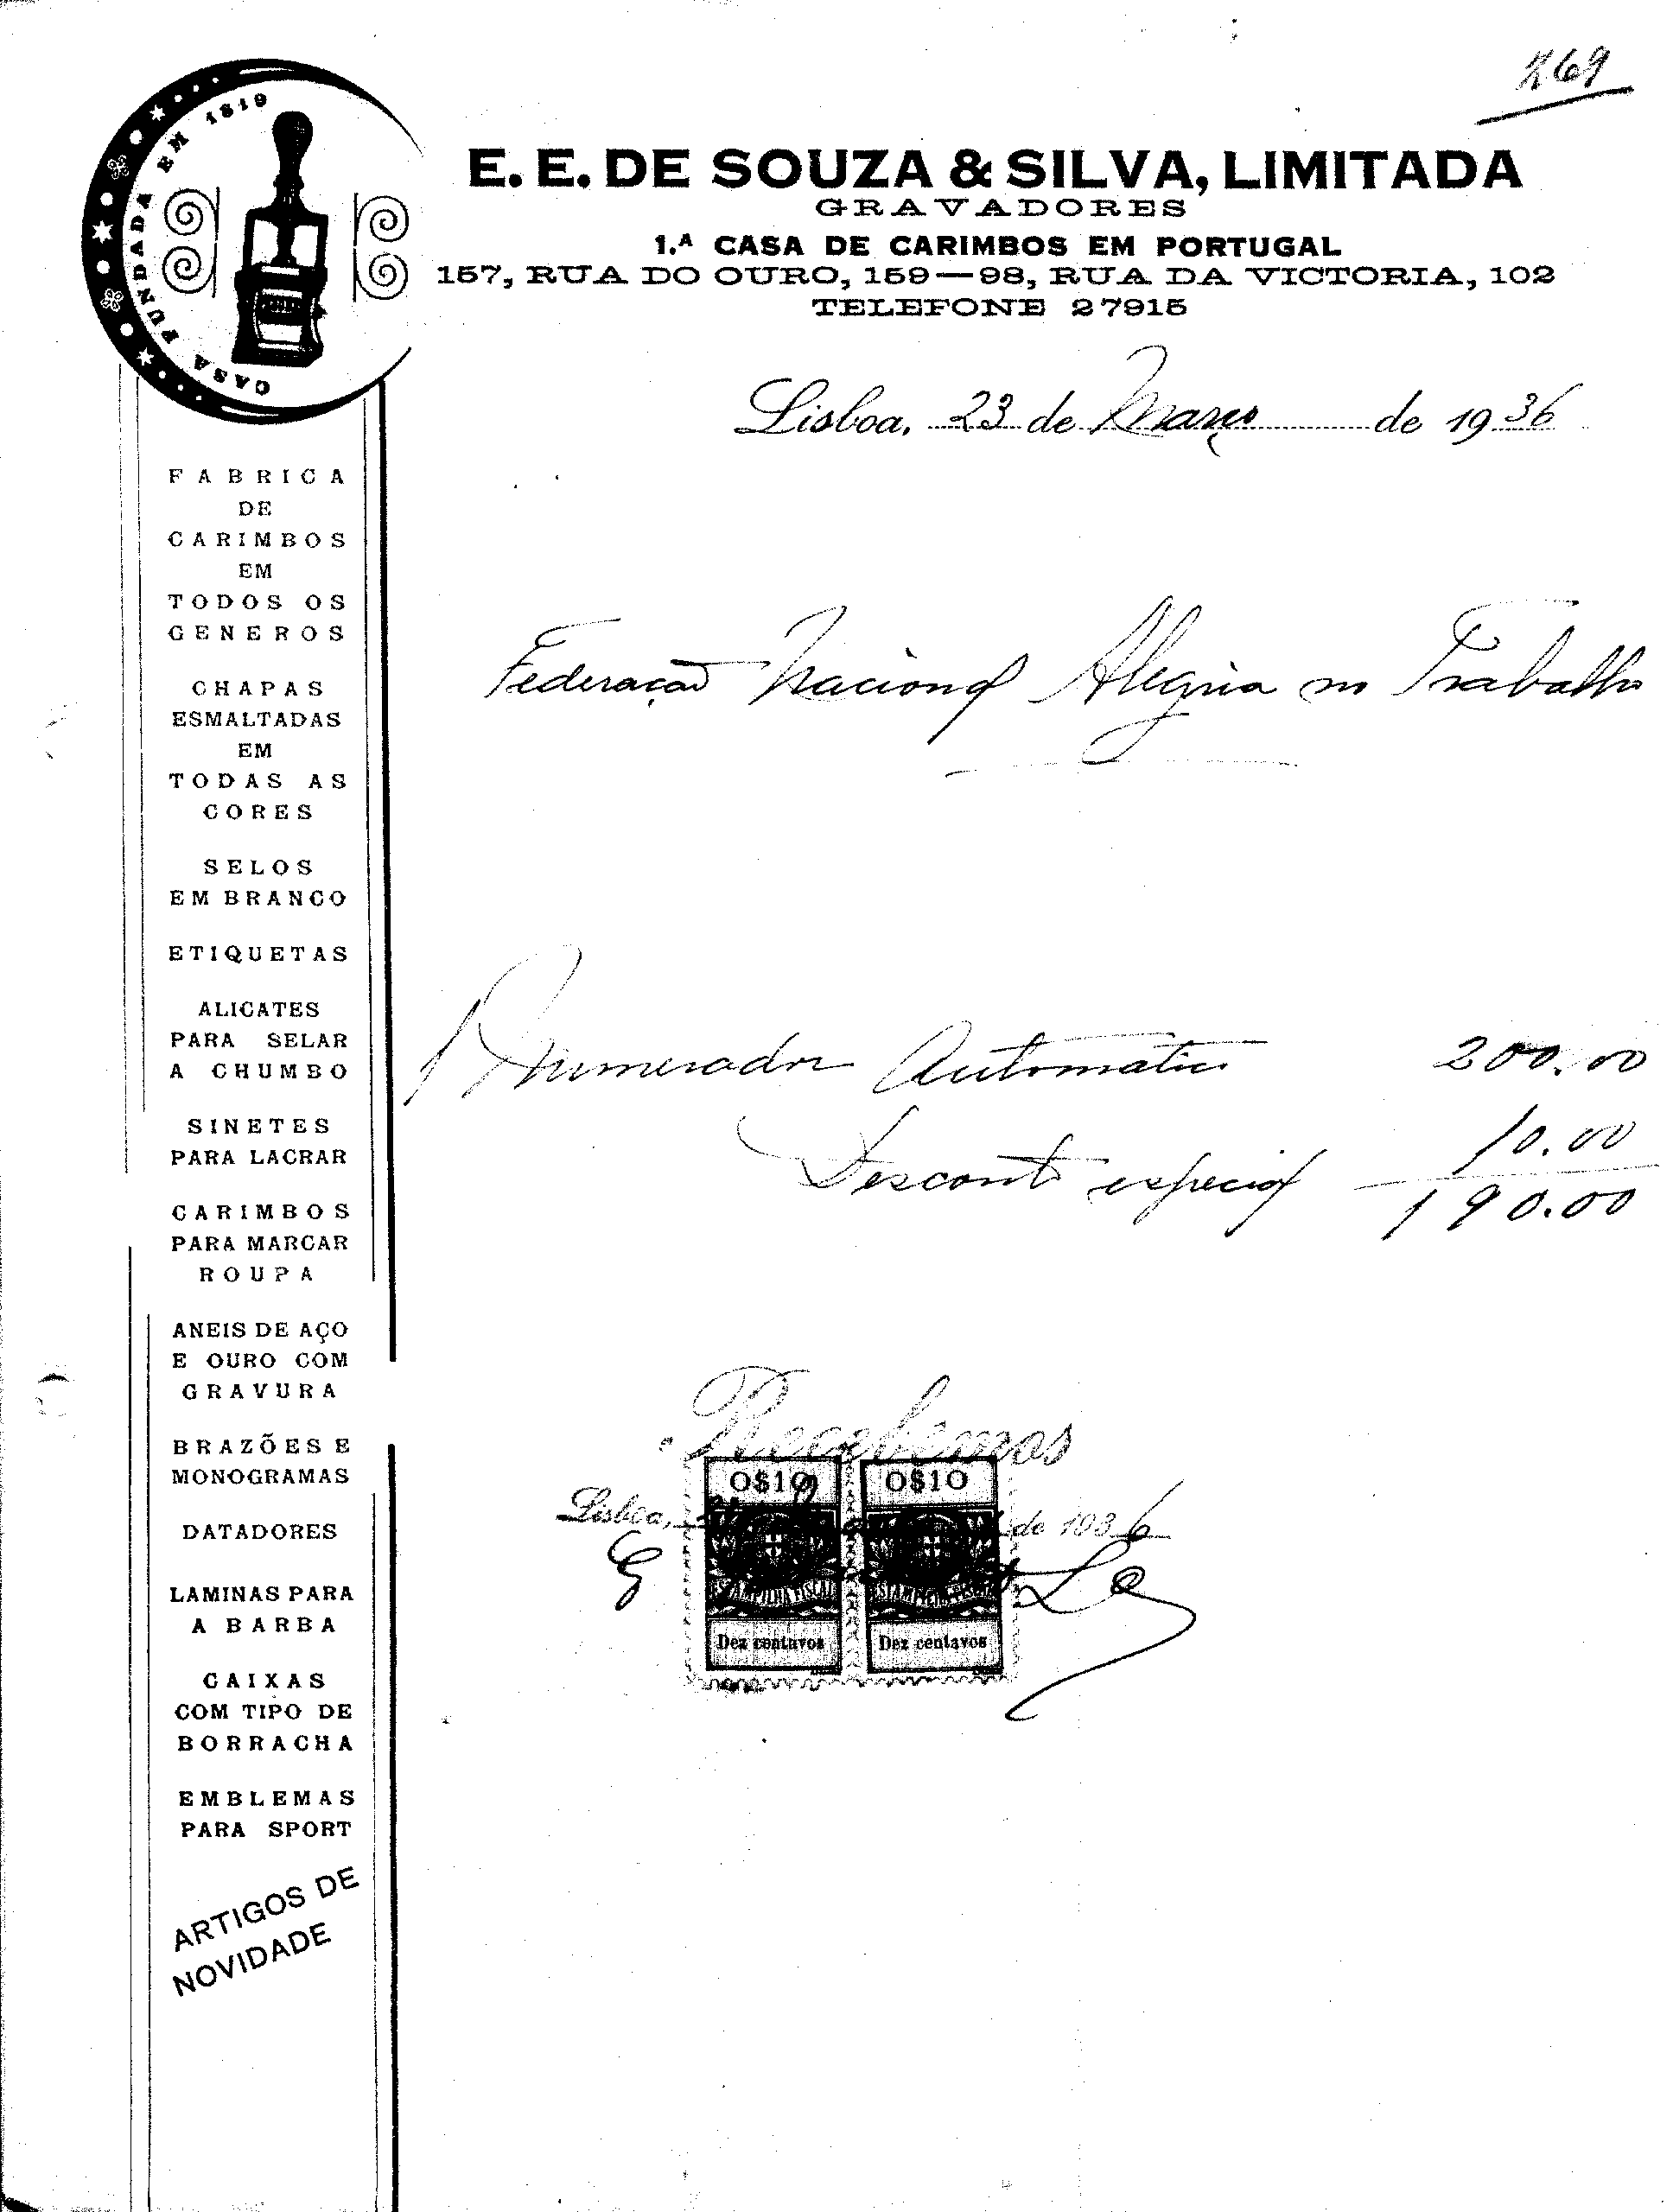 269
CASA FUNDADA EM 1819
E. E. DE SOUZA & SILVA, LIMITADA
GRAVADORES
1.ᴬ CASA DE CARIMBOS EM PORTUGAL
157, RUA DO OURO, 159—98, RUA DA VICTORIA, 102
TELEFONE 27915
Lisboa, 23 de Março de 1936
FABRICA
DE
CARIMBOS
EM
TODOS OS
GENEROS
CHAPAS
ESMALTADAS
EM
TODAS AS
CORES
SELOS
EM BRANCO
ETIQUETAS
ALICATES
PARA SELAR
A CHUMBO
SINETES
PARA LACRAR
CARIMBOS
PARA MARCAR
ROUPA
ANEIS DE AÇO
E OURO COM
GRAVURA
BRAZÕES E
MONOGRAMAS
DATADORES
LAMINAS PARA
A BARBA
CAIXAS
COM TIPO DE
BORRACHA
EMBLEMAS
PARA SPORT
ARTIGOS DE
NOVIDADE
Federação Nacional Alegria no Trabalho
1 Numerador Automatico 200.00
Desconto especial 10.00
190.00
Recebemos
0$10 0$10
Lisboa, de 1936
ESTAMPILHA FISCAL ESTAMPILHA FISCAL
Dez centavos Dez centavos